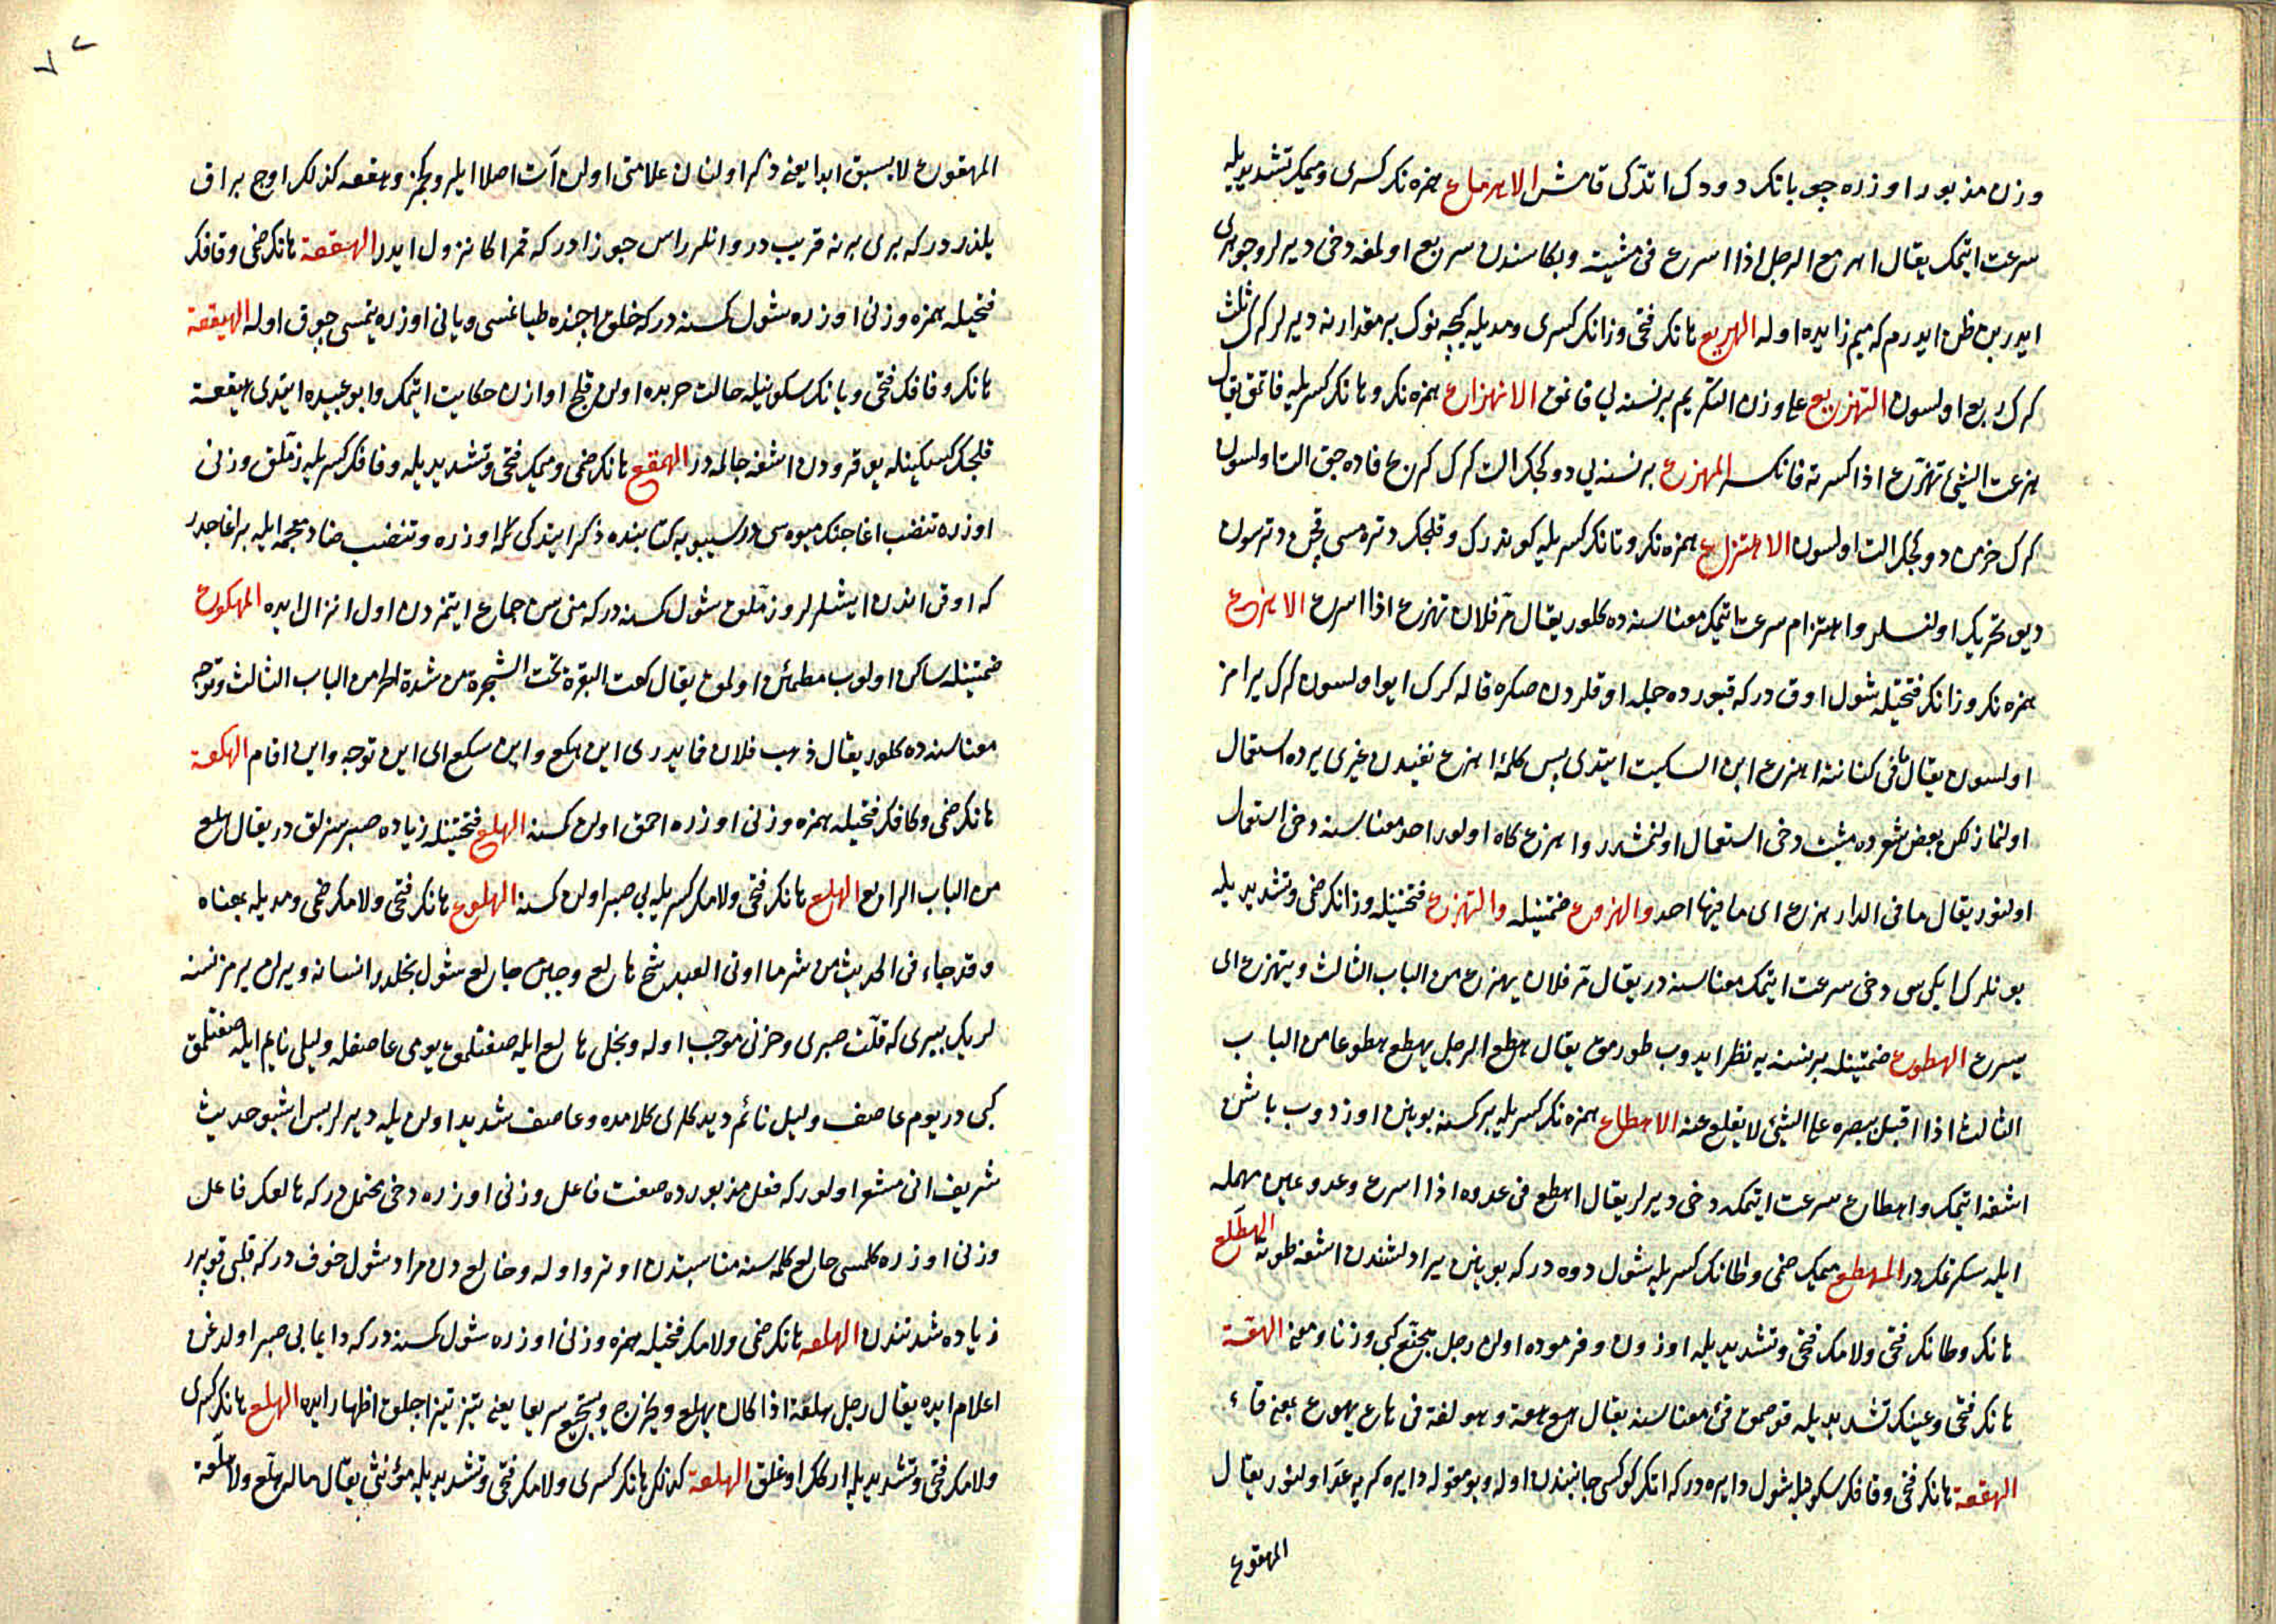 وزن مذبور اوزره چوبانكر دودك اتدكى قامش الاهرماع همزه نكر كسرى وميمكر تشديديله
سرعت ايتمك يقال اهرمع الرجل اذا اسرع فى مشيته وبكا سندن سريع اولمغه دخى ديرلر وجوهرى
ايدر بن ظن ايدرم كه ميم زايده اوله الهزيع هانكر فتحى وزانكر كسرى ومديله كيجه نوك بر مقدارنه ديرلر كرك ثلث
كرك ربع اولسون التهزيع على وزن التكريم بر نسنه يي قاتمق الانهزاع همزه نكر وهانكر كسريله قاتمق يقال
هزعت الشئ تهزع اذا كسرته فانكسر المهزع بر نسنه يي دوكجكر الت كرك كرنج قاده جق الت اولسون
كرك خرمن دوكجكر الت اولسون الاهتزاع همزه نكر وتانكر كسريله كوندرك وقلجك دتره مسى قچن دترسون
ديو تحريك اولنسلر واهتزام سرعت ايتمك معناسنه ده كلور يقال مر فلان تهزع اذا اسرع الاهزع
همزه نكر وزانكر فتحتيله شول اوق در كه قبورده جمله اوقلردن صكره قاله كرك ايو اولسون كرك يرامز
اولسون يقال ما فى كنانته اهزع ابن السكيت ايتدى پس كلمۀ اهزع نفيدن غيرى يرده استعمال
اولنماز لكن بعض شعرده مثبت دخى استعمال اولنمشدر واهزع كاه اولور احد معناسنه دخى استعمال
اولنور يقال ما فى الدار هزع اى ما فيها احد والهزوع ضمتينله والتهزع فتحتينله وزانكر ضمى وتشديديله
بونلرك ايكى سى دخى سرعت ايتمك معناسنه در يقال مر فلان يهزع من الباب الثالث ويتهزع اى
يسرع الهطوع ضمتينله بر نسنه يه نظر ايدوب طورمق يقال هطع الرجل يهطع هطوعا من الباب
الثالث اذا اقبل ببصره على الشئ لا يقلع عنه الاهطاع همزه نكر كسريله بر كسنه بوينن اوزدوب باشن
اشغه ايتمك واهطاع سرعت ايتمكه دخى ديرلر يقال اهطع فى عدوه اذا اسرع وعدو عين مهمله
ايله سكرتمك در المهطع ميمك ضمى وطانك كسريله شول دوه در كه بوينن يرادلشندن اشغه طوته الهطلع
هانكر وطانكر فتحى ولامكر فتحى وتشديديله اوزون وفرموده اولن رجل هجنع كبى وزنا ومعنى الهعة
هانكر فتحى وعينكر تشديديله قوصمق قئ معناسنه يقال هع هعة وهو لغة فى هاع يهوع بمعنى قاء
الهقعة هانكر فتحى وقافكر سكونيله شول دايره در كه اتكر كوكسى جانبندن اوله وبو مقوله دايره كريه عد اولنور يقال
المهقوع
٧٢
المهقوع لا يسبق ابدا يعنى ذكر اولنان علامتى اولن آت اصلا ايلرو كچمز وهقعه كذلك اوج براق
يلدزدركه برى برنه قريب در وانلر راس جوزادركه قمر اكا نزول ايدر الهقعة هانكر ضمى وقافكر
فتحيله همزه وزنى اوزره شول كسنه دركه خلق اچنده طياغنسى ويانى اوزره يتمسى چوق اوله الهيقعة
هانكر وقافكر فتحى ويانكر سكونيله حالت حربده اولن قلج اوازن حكايت ايتمك وابو عبيده ايتدى هيقعة
قلجك كسكينله يوقرودن اشغه چالمه در الهمقع هانكر ضمى وميمكر فتحى وتشديديله وقافكر كسريله زملق وزنى
اوزره تنضب اغاجنك ميوه سى در سيبويه كتابنده ذكر ايتدكى كه اوزره وتنضب ضاد معجمه ايله بر اغاجدر
كه اوقى اندن ايشلرلر وزملق شول كسنه دركه منى سن جماع ايتمزدن اول انزال ايده الهكوع
ضمتينله ساكن اولوب مطمئن اولمق يقال هكعت البقرة تحت الشجرة من شدة الحر من الباب الثالث وتوجه
معناسنه ده كلور يقال ذهب فلان فما يدرى اين هكع واين سكع اى اين توجه واين اقام الهكعة
هانكر ضمى وكافكر فتحيله همزه وزنى اوزره احمق اولن كسنه الهلع فتحتينله زياده صبرسزلق در يقال هلع
من الباب الرابع الهلع هانكر فتحى ولامكر كسريله بى صبر اولن كسنه الهلوع هانكر فتحى ولامكر ضمى ومديله بمعناه
وقد جاء فى الحديث من شر ما اوتى العبد شح هالع وجبن خالع شول بخلدر انسانه ويرلن يرمز نسنه
لريك بيرى كه قلت صبرى وحزنى موجب اوله وبخلى هالع ايله صفتلمق يومى عاصفله وليلى نايم ايله صفتلمق
كبى در يوم عاصف وليل نائم ديدكلرى كلامده وعاصف شديد اولن يله ديرلر پس اشبو حديث
شريف انى مشعر اولور كه فعل مذبورده صفت فاعل وزنى اوزره دخى محتمل دركه هالعكر فاعل
وزنى اوزره كلمسى خالع كلمه سنه مناسبتدن اوترو اوله وخالع دن مراد شول خوف دركه قلبى قوپرر
زياده شدتندن الهلعة هانكر ضمى ولامكر فتحيله همزه وزنى اوزره شول كسنه دركه دايما بى صبر اولدغن
اعلام ايده يقال رجل هلعة اذا كان يهلع ويجزع ويستجيع سريعا يعنى تيز تيز اجلق اظهار ايده الهلع هانكر كسرى
ولامكر فتحى وتشديديله اركك اوغلق الهلعة كذلك هانكر كسرى ولامكر فتحى وتشديديله مؤنثى يقال ماله هلع ولا هلعة